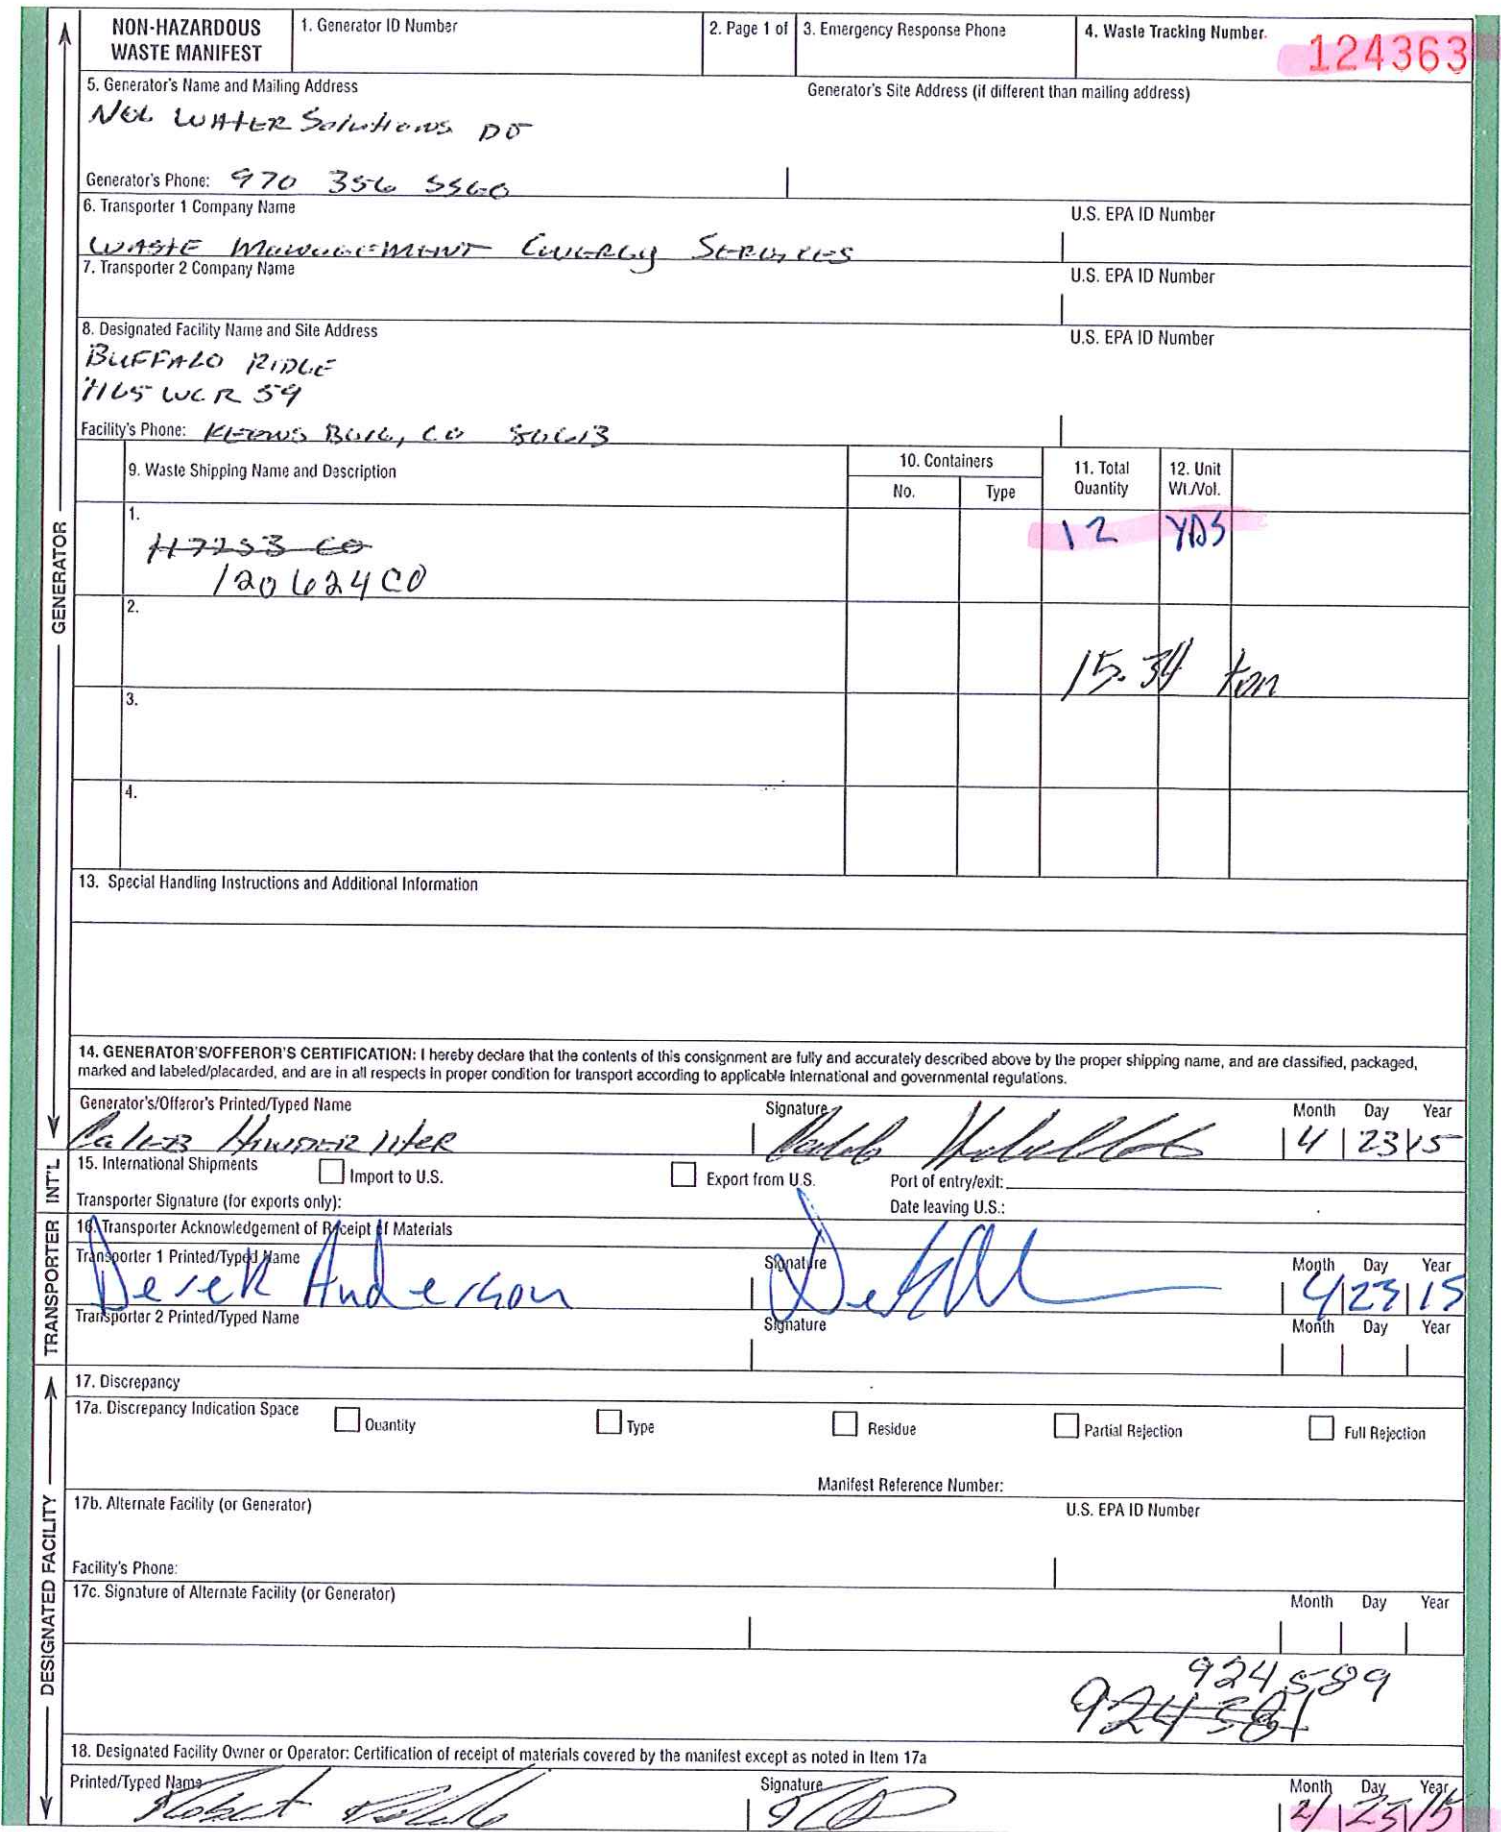 NON-HAZARDOUS WASTE MANIFEST
1. Generator ID Number
2. Page 1 of
3. Emergency Response Phone
4. Waste Tracking Number
124363
5. Generator's Name and Mailing Address
Generator's Site Address (if different than mailing address)
WATER Solutions DJ
Generator's Phone: 970 356 5560
6. Transporter 1 Company Name
U.S. EPA ID Number
WASTE Management Energy Services
7. Transporter 2 Company Name
U.S. EPA ID Number
8. Designated Facility Name and Site Address
U.S. EPA ID Number
BUFFALO RIDGE
WCR 59
Facility's Phone: CO
9. Waste Shipping Name and Description
10. Containers
No.
Type
11. Total Quantity
12. Unit Wt./Vol.
1.
12 YDS
120624CO
2.
15.34 ton
3.
4.
13. Special Handling Instructions and Additional Information
14. GENERATOR'S/OFFEROR'S CERTIFICATION: I hereby declare that the contents of this consignment are fully and accurately described above by the proper shipping name, and are classified, packaged,
marked and labeled/placarded, and are in all respects in proper condition for transport according to applicable international and governmental regulations.
Generator's/Offeror's Printed/Typed Name
Signature
Month Day Year
Caleb
4 23 15
15. International Shipments
Import to U.S.
Export from U.S.
Port of entry/exit:
Transporter Signature (for exports only):
Date leaving U.S.:
16. Transporter Acknowledgement of Receipt of Materials
Transporter 1 Printed/Typed Name
Signature
Month Day Year
Derek Anderson
4 23 15
Transporter 2 Printed/Typed Name
Signature
Month Day Year
17. Discrepancy
17a. Discrepancy Indication Space
Quantity
Type
Residue
Partial Rejection
Full Rejection
Manifest Reference Number:
17b. Alternate Facility (or Generator)
U.S. EPA ID Number
Facility's Phone:
17c. Signature of Alternate Facility (or Generator)
Month Day Year
924589
924381
18. Designated Facility Owner or Operator: Certification of receipt of materials covered by the manifest except as noted in Item 17a
Printed/Typed Name
Signature
Month Day Year
Robert
23 15
GENERATOR
INT'L
TRANSPORTER
DESIGNATED FACILITY